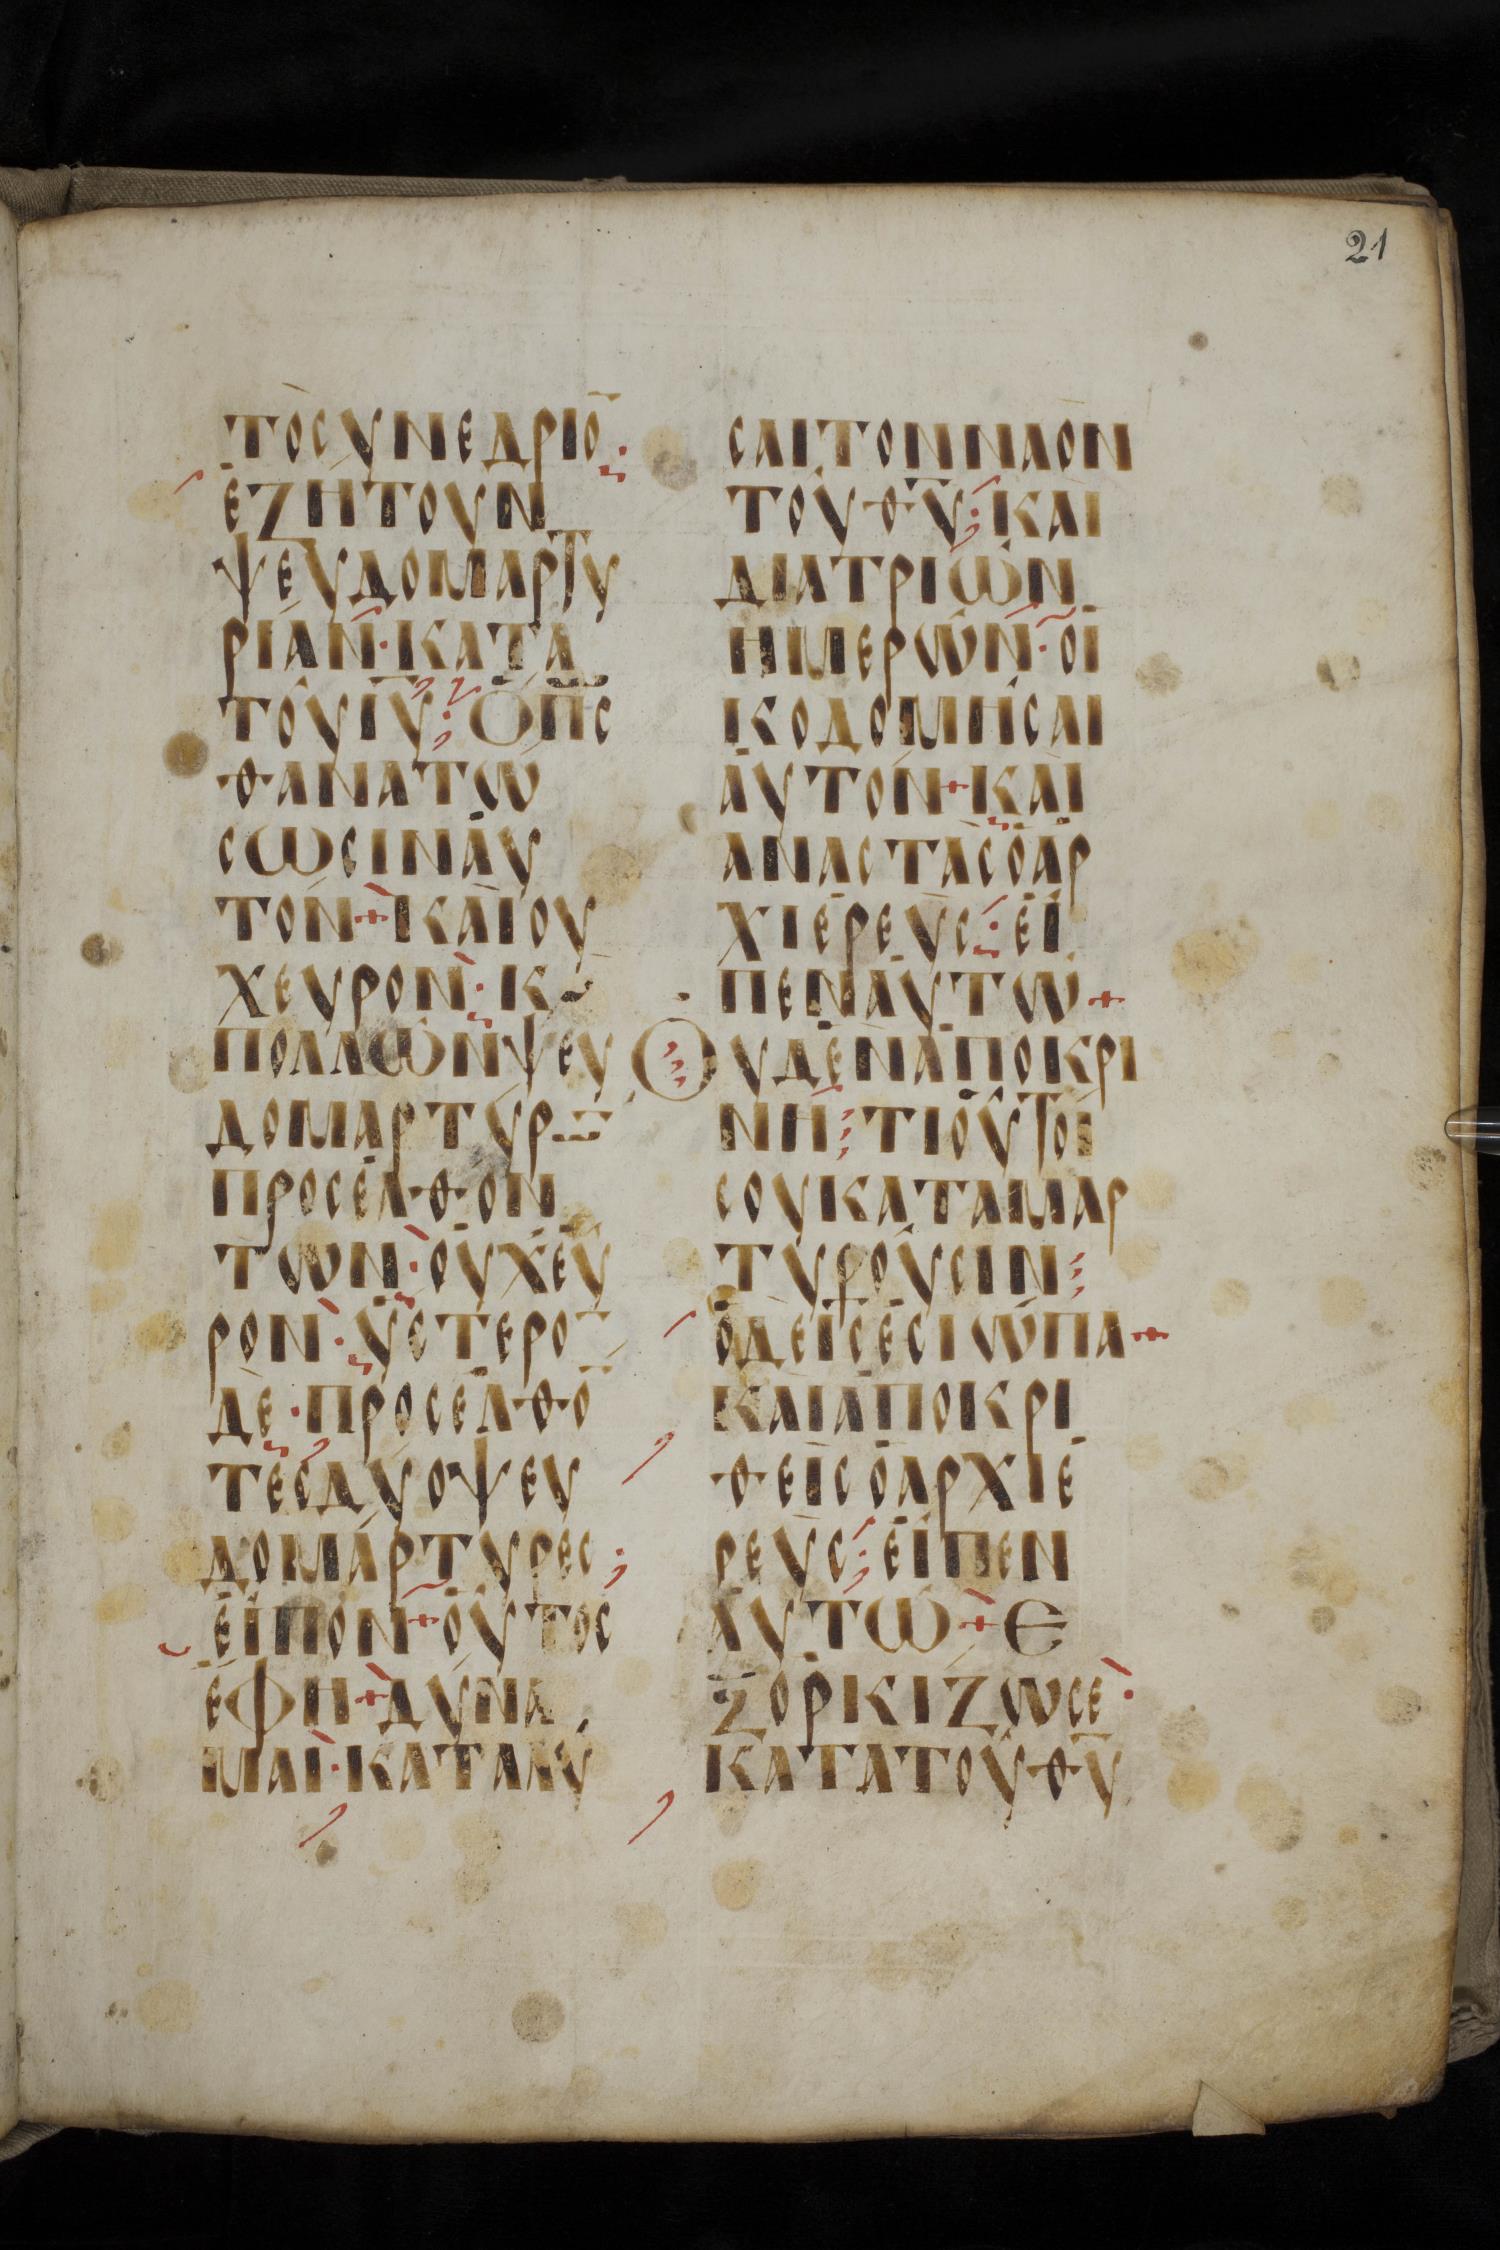 21
ΤΟϹΥΝΕΔΡΙΟ̅
ΕΖΗΤΟΥΝ
ΨΕΥΔΟΜΑΡΤΥ
ΡΙΑΝ·ΚΑΤΑ
ΤΟΥΙΥ̅:ΟΠ̅Ϲ
ΘΑΝΑΤΩ
ϹΩϹΙΝΑΥ
ΤΟΝ+ΚΑΙΟΥ
ΧΕΥΡΟΝ·Κ
ΠΟΛΛΩΝΨΕΥ
ΔΟΜΑΡΤΥΡ
ΠΡΟϹΕΛΘΟΝ
ΤΩΝ·ΟΥΧΕΥ
ΡΟΝ·ΥϹΤΕΡΟ̅
ΔΕ·ΠΡΟϹΕΛΘΟ̅
ΤΕϹΔΥΟΨΕΥ
ΔΟΜΑΡΤΥΡΕϹ:
ΕΙΠΟΝ+ΟΥΤΟϹ
ΕΦΗ+ΔΥΝΑ
ΜΑΙ·ΚΑΤΑΛΥ
ϹΑΙΤΟΝΝΑΟΝ
ΤΟΥΘΥ̅:ΚΑΙ
ΔΙΑΤΡΙΩΝ
ΗΜΕΡΩΝ·ΟΙ
ΚΟΔΟΜΗϹΑΙ
ΑΥΤΟΝ+ΚΑΙ
ΑΝΑϹΤΑϹΟΑΡ
ΧΙΕΡΕΥϹ:ΕΙ
ΠΕΝΑΥΤΩ+
ΟΥΔΕΝΑΠΟΚΡΙ
ΝΗ;ΤΙΟΥΤΟΙ
ϹΟΥΚΑΤΑΜΑΡ
ΤΥΡΟΥϹΙΝ;
ΟΔΕΙϹΕϹΙΩΠΑ+
ΚΑΙΑΠΟΚΡΙ
ΘΕΙϹΟΑΡΧΙΕ
ΡΕΥϹ:ΕΙΠΕΝ
ΑΥΤΩ+Ε
ΞΟΡΚΙΖΩϹΕ·
ΚΑΤΑΤΟΥΘΥ̅